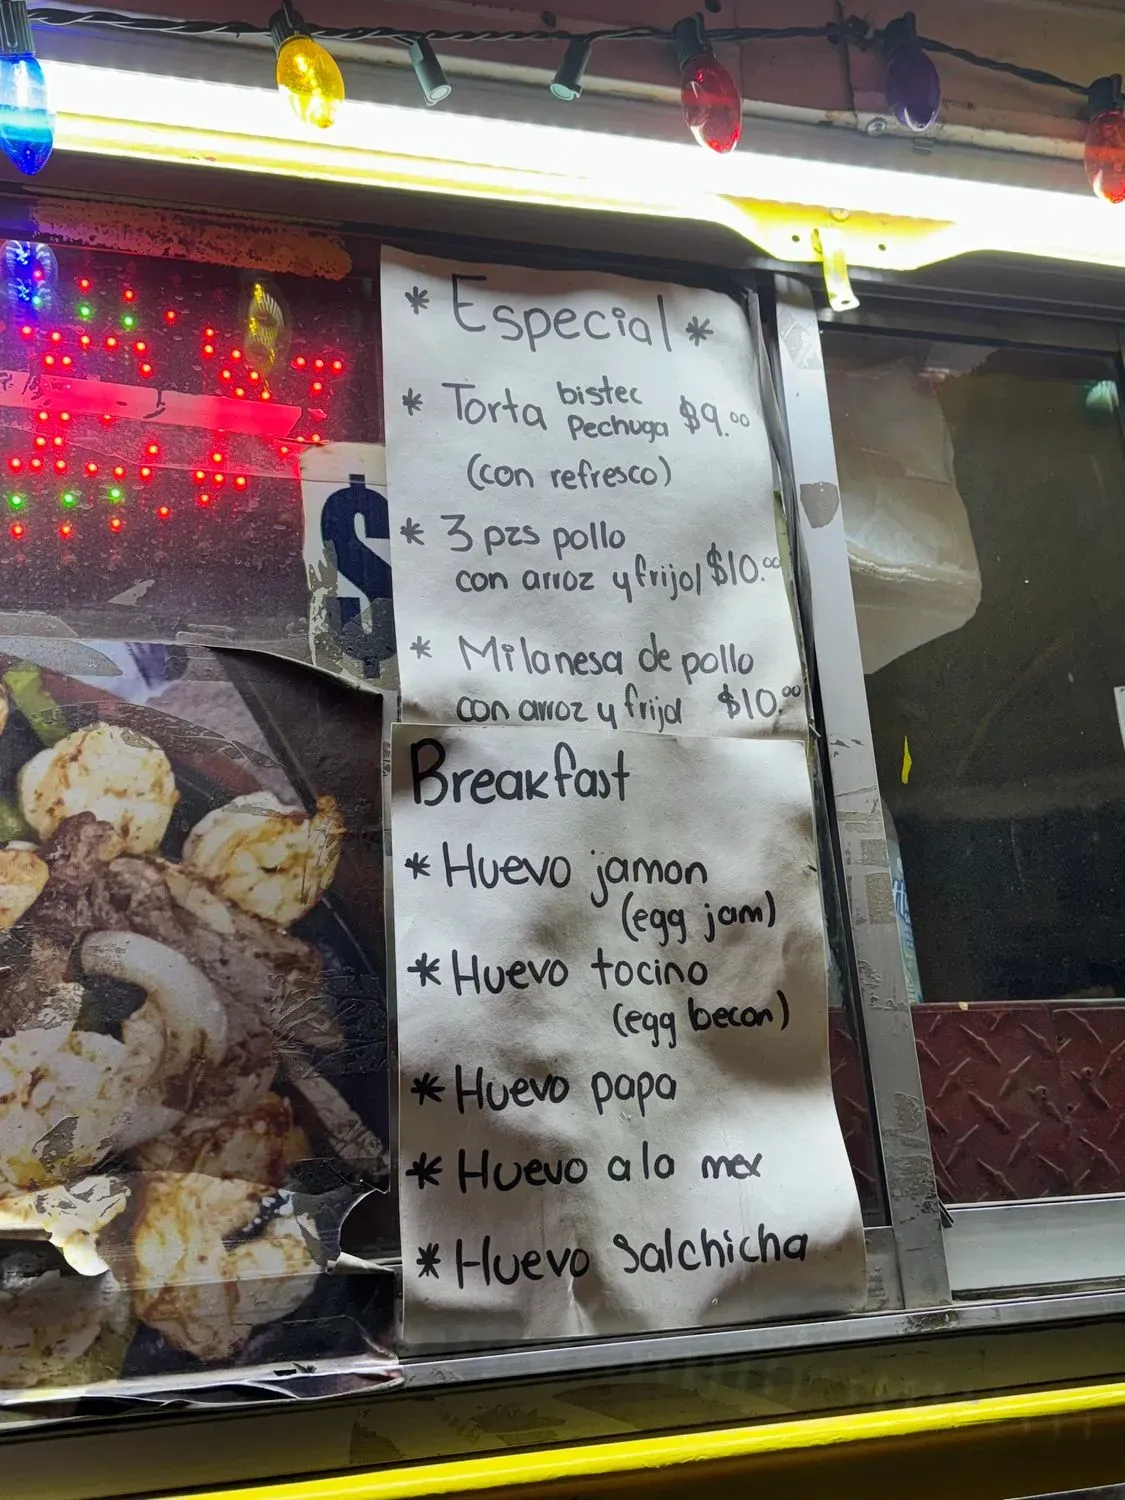 * Especial *
* Torta bistec Pechuga $9.00
(con refresco)
* 3 pzs pollo
con arroz y frijol $10.00
* Milanesa de pollo
con arroz y frijol $10.00
$
Breakfast
* Huevo jamon
(egg jam)
* Huevo tocino
(egg becon)
* Huevo papa
* Huevo a la mex
* Huevo Salchicha